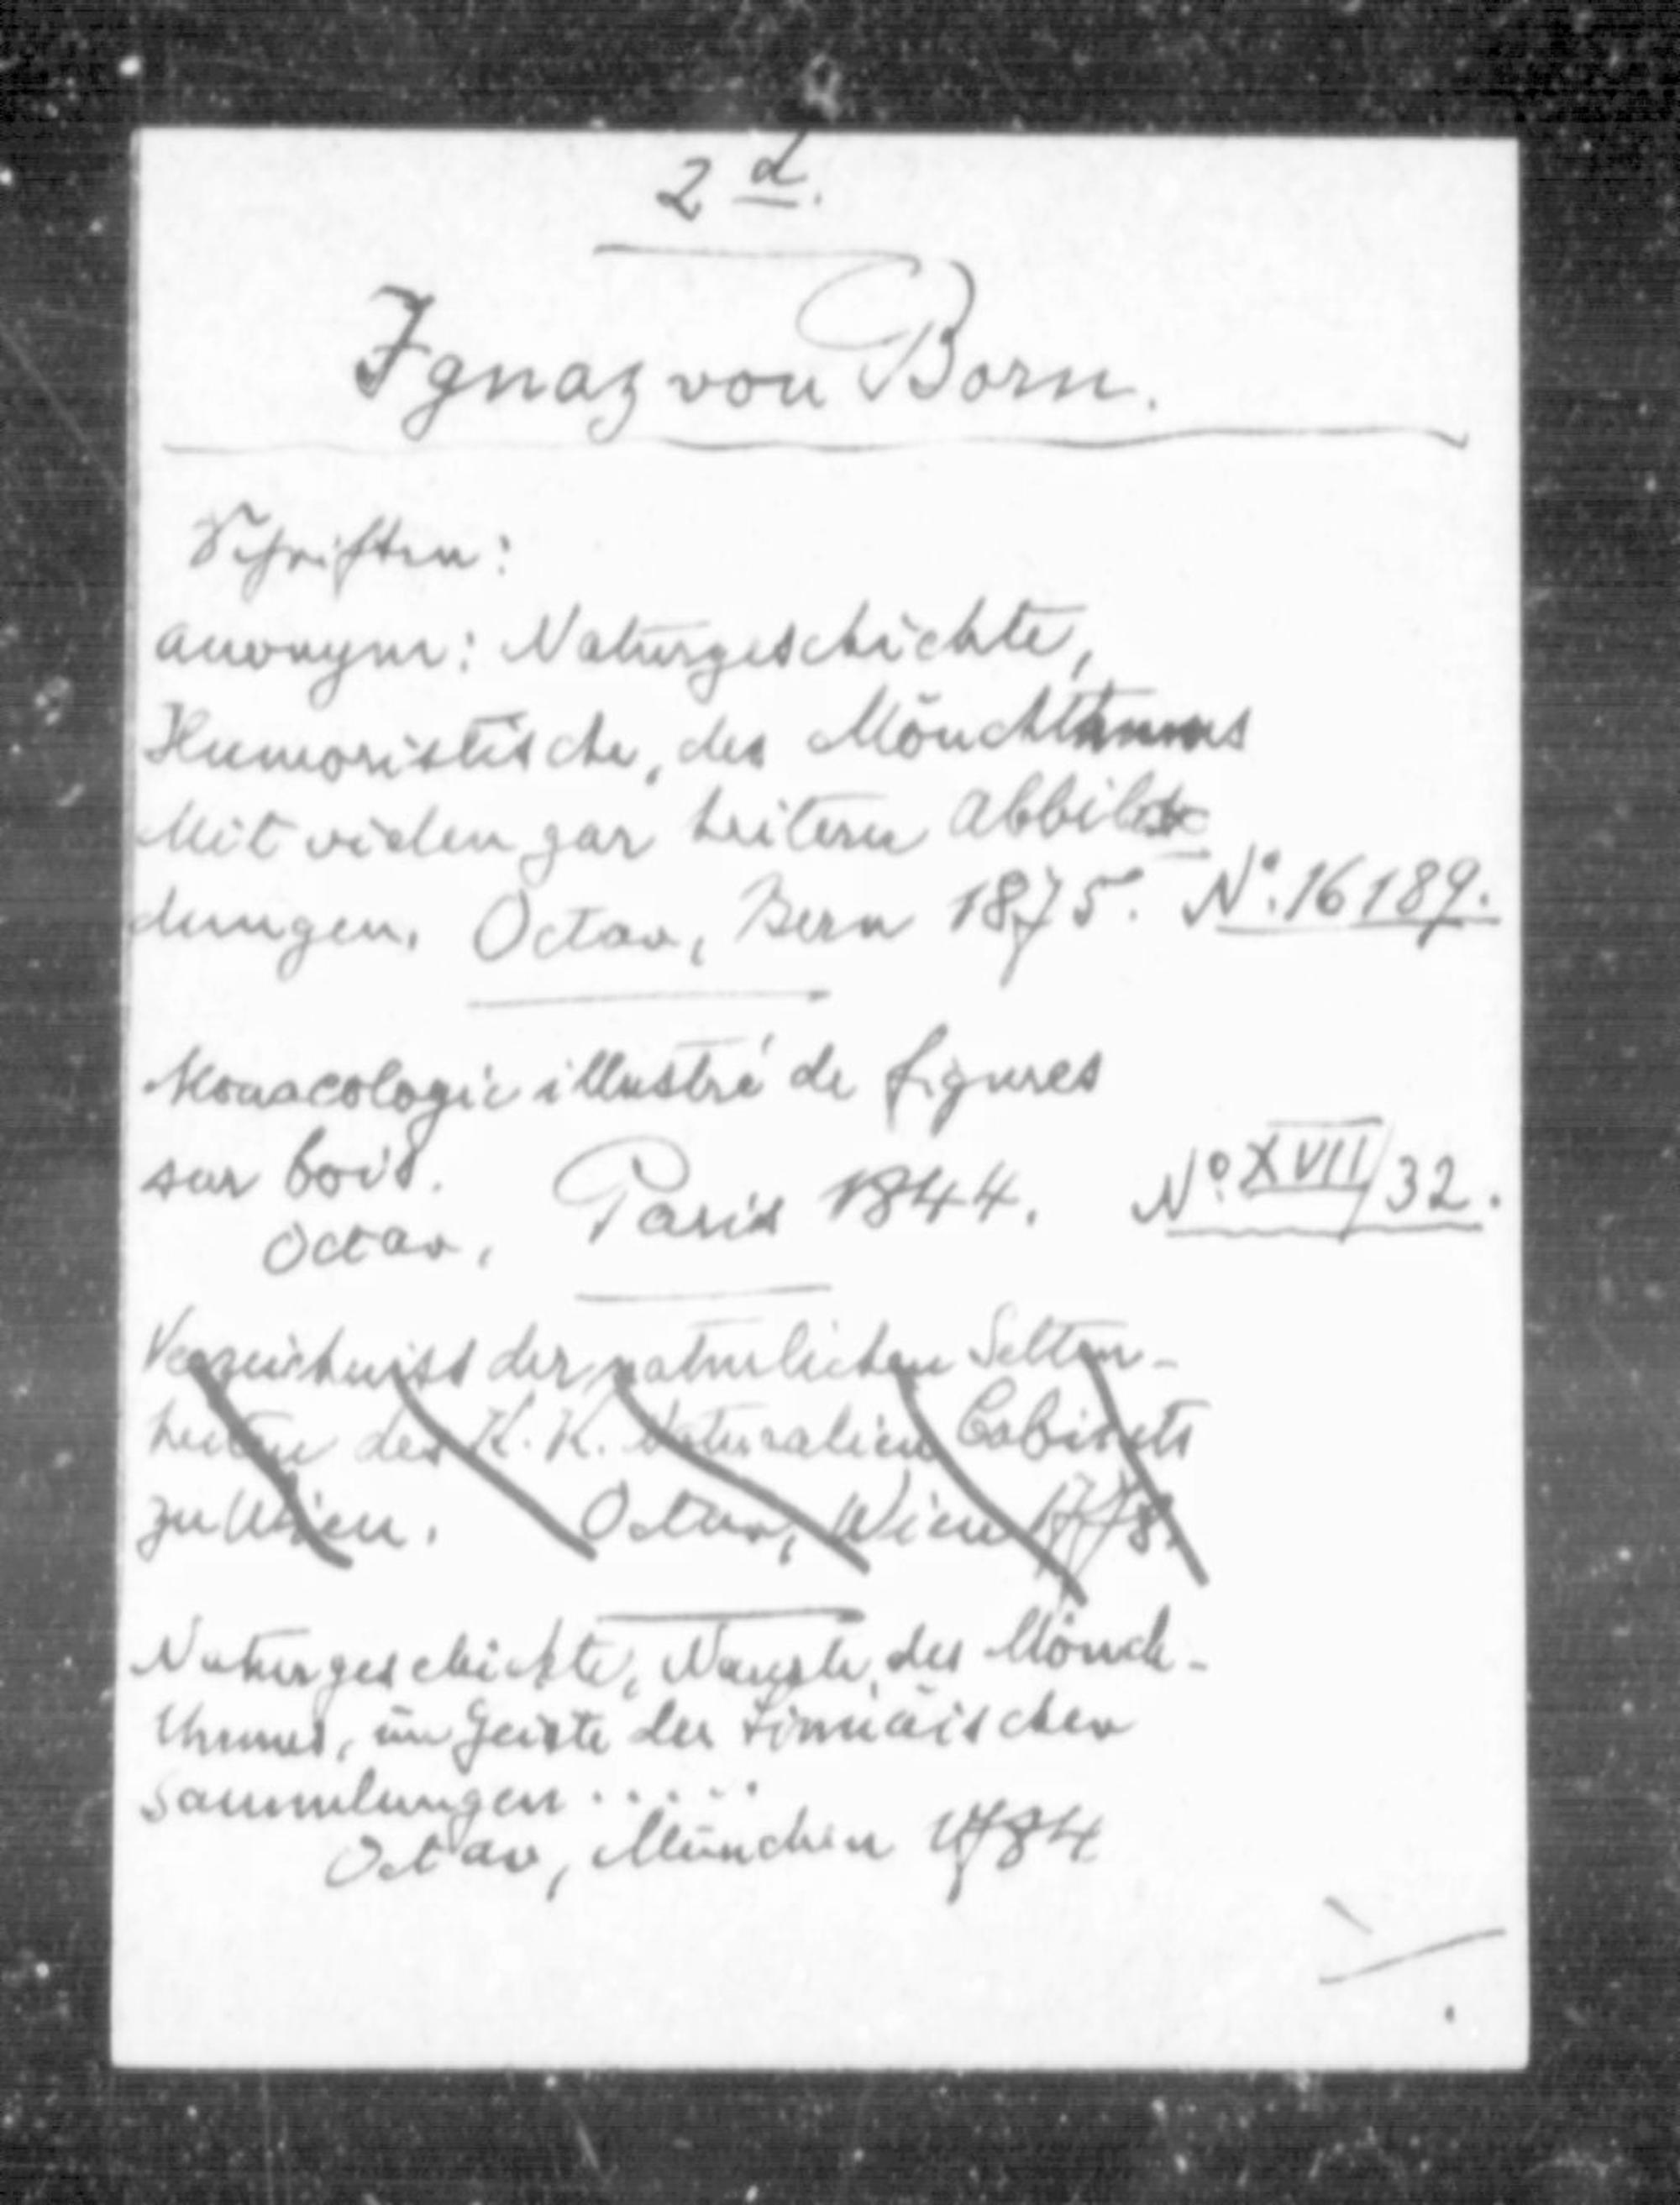 2 d.
Ignaz von Born.
Schriften:
anonym: Naturgeschichte,
Humoristische, des Mönchthums
Mit vielen gar heitern Abbil-
dungen. Octav, Bern 1875. No. 16189.
Monacologie illustré de figures
sur bois. Paris 1844. No. XVII/32.
Octav,
Verzeichniss der natürlichen Selten-
heiten des K. K. Naturalien Cabinets
zu Wien. Octav, Wien 1778.
Naturgeschichte, Neueste, des Mönch-
thumes, im Geiste der
Sammlungen .....
Octav, München 1784